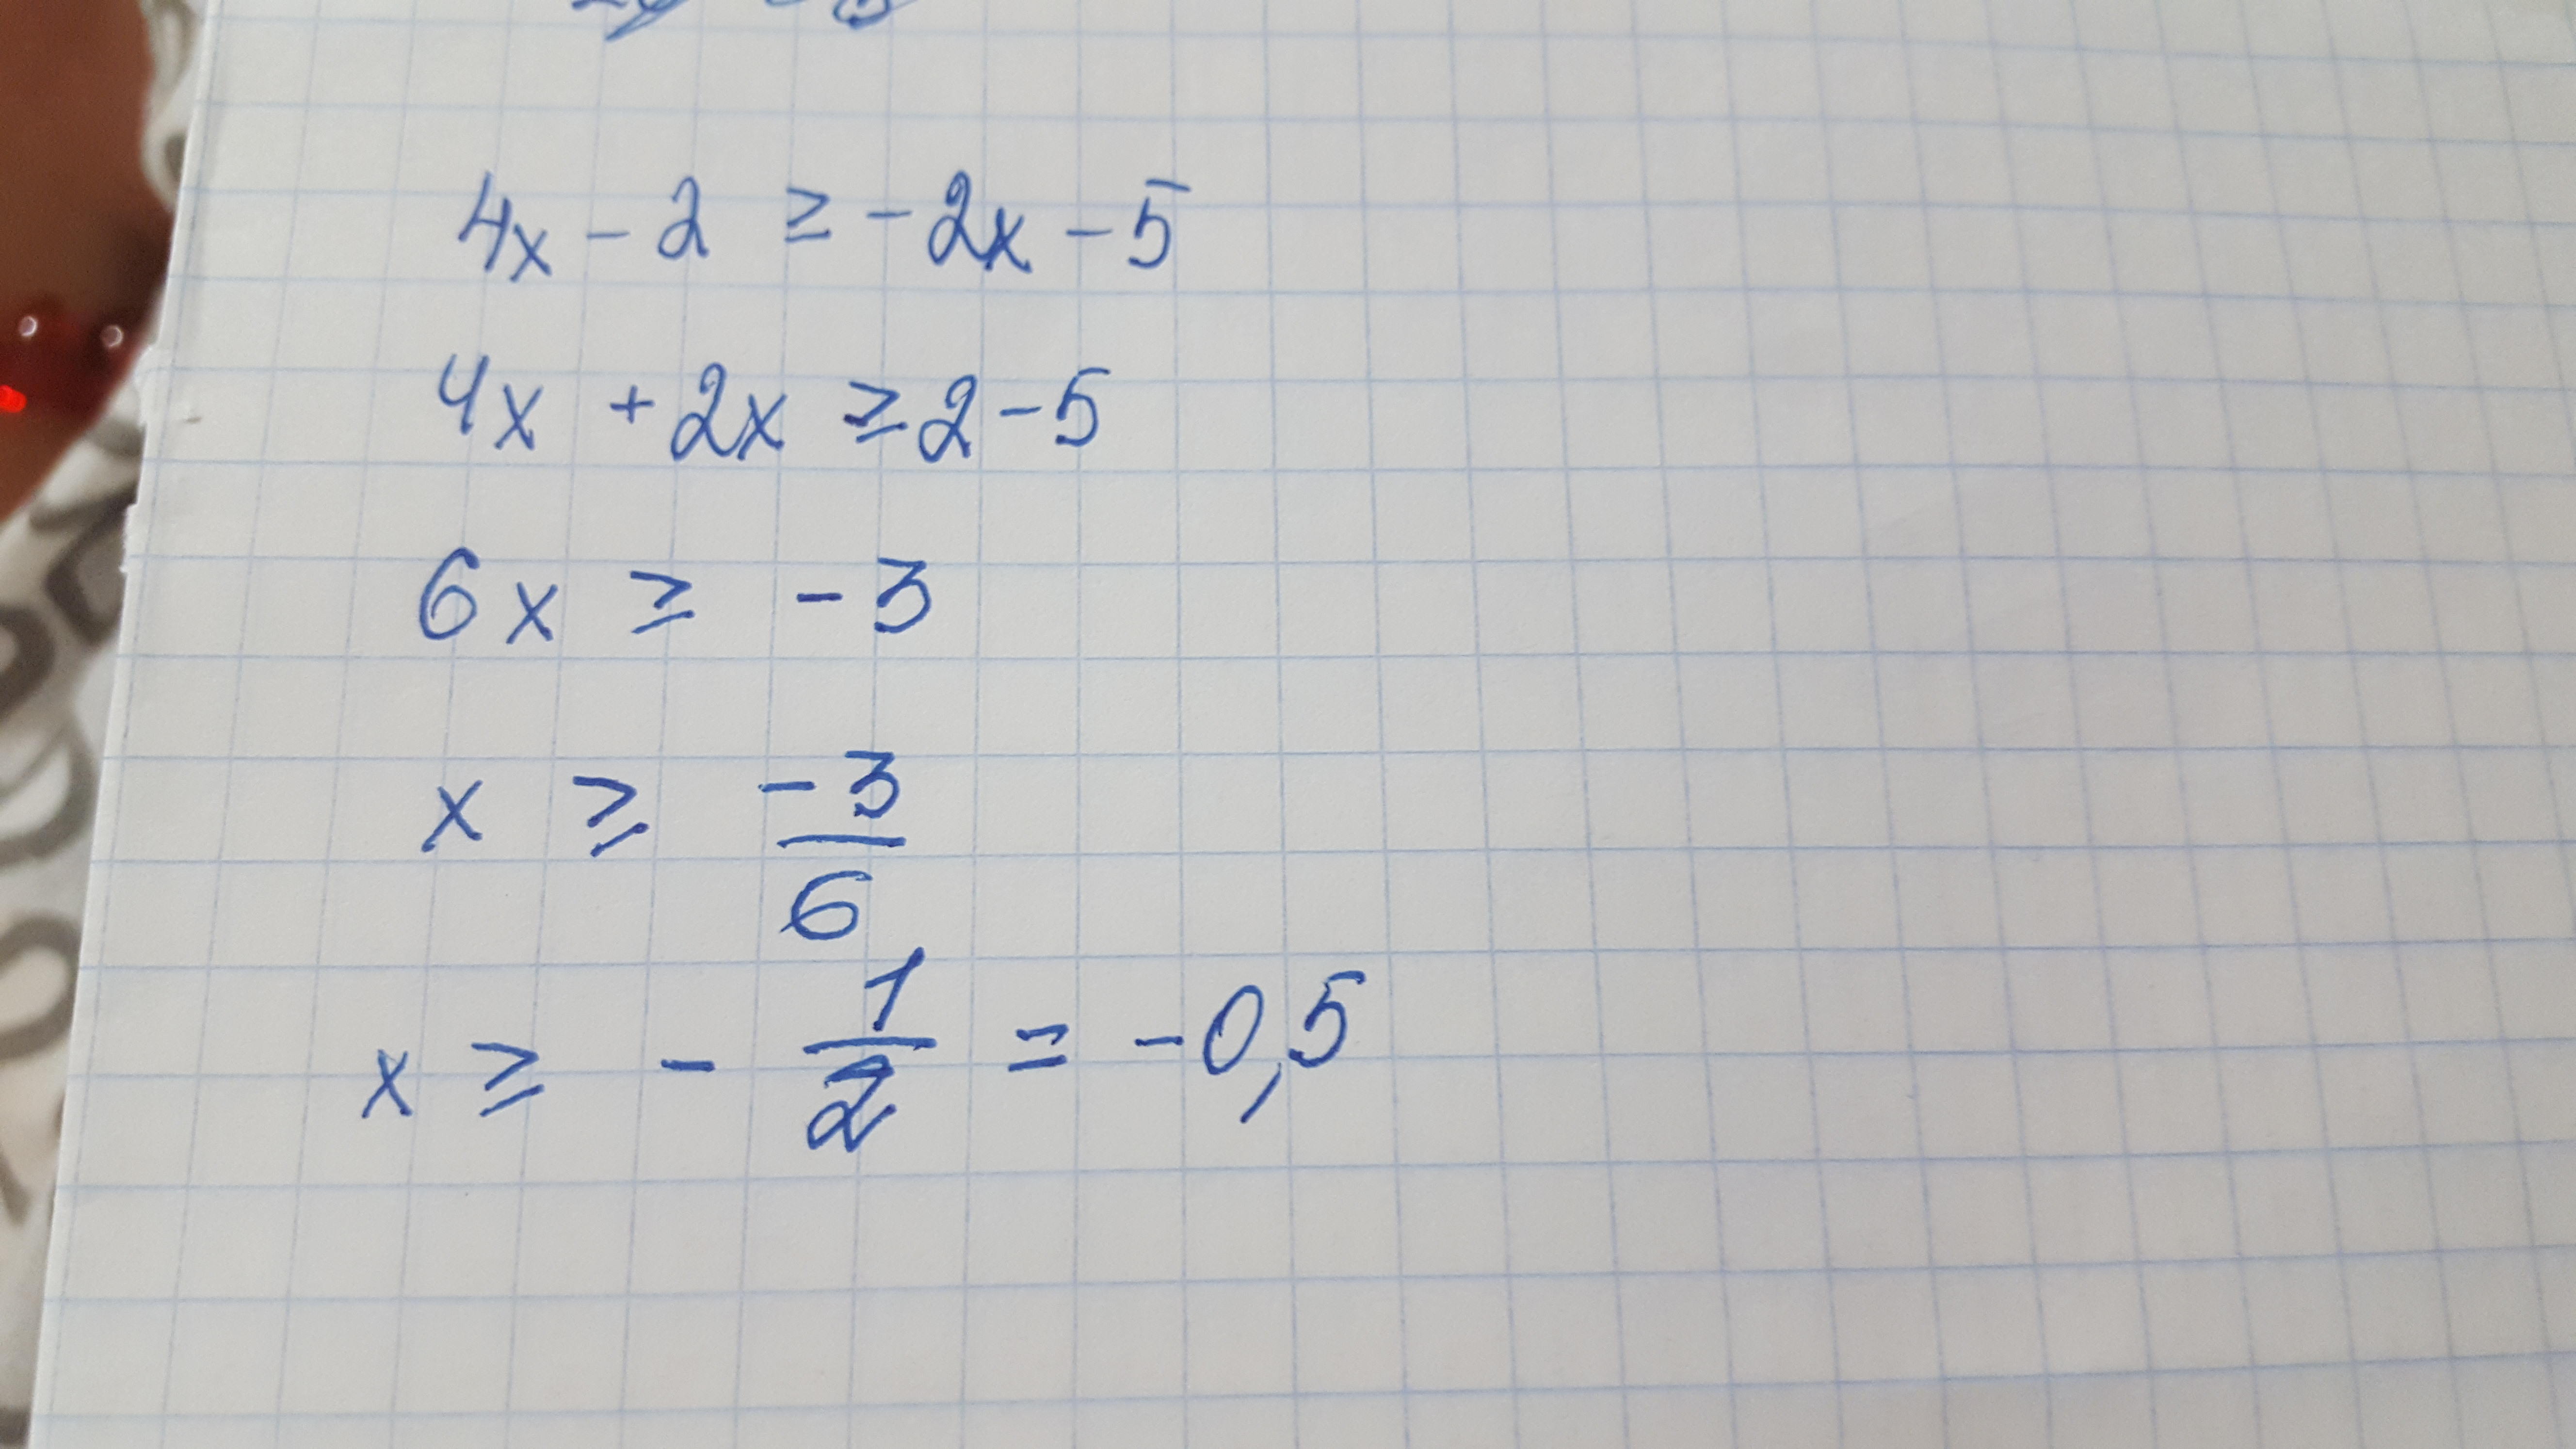 4x - 2 ≥ - 2x - 5
4x + 2x ≥ 2 - 5
6x ≥ - 3
x ≥ -3/6
x ≥ - 1/2 = -0,5